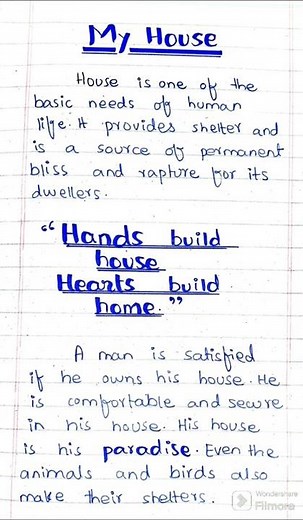 My House
House is one of the
basic needs of human
life. It provides shelter and
is a source of permanent
bliss and rapture for its
dwellers.
“Hands build
house
Hearts build
home.”
A man is satisfied
if he owns his house. He
is comfortable and secure
in his house. His house
is his paradise. Even the
animals and birds also
make their shelters.
Wondershare
Filmora